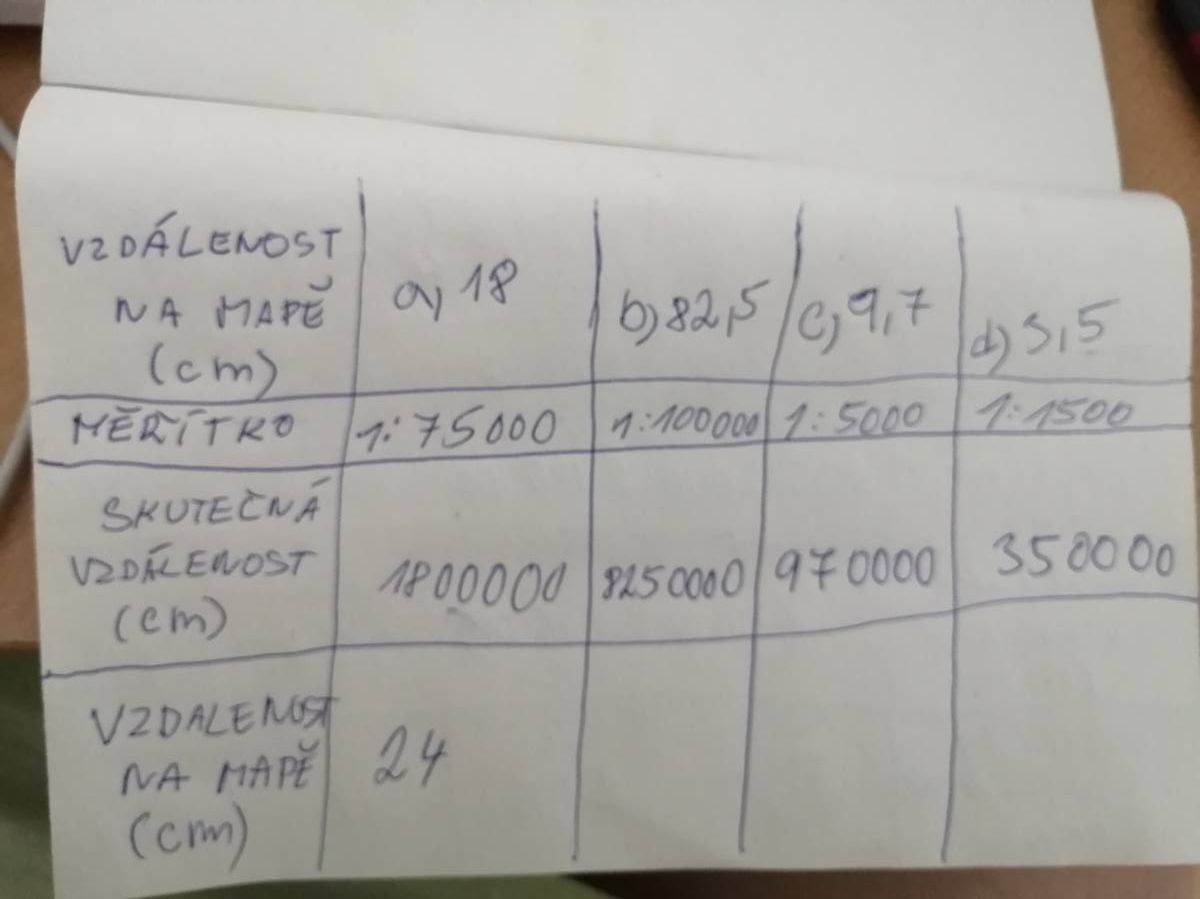 VZDÁLENOST NA MAPĚ (cm) a) 18 b) 82,5 c) 9,7 d) 3,5
MĚŘÍTKO 1:75000 1:100000 1:5000 1:1500
SKUTEČNÁ VZDÁLENOST (cm) 1800000 8250000 970000 350000
VZDALENOST NA MAPĚ (cm) 24